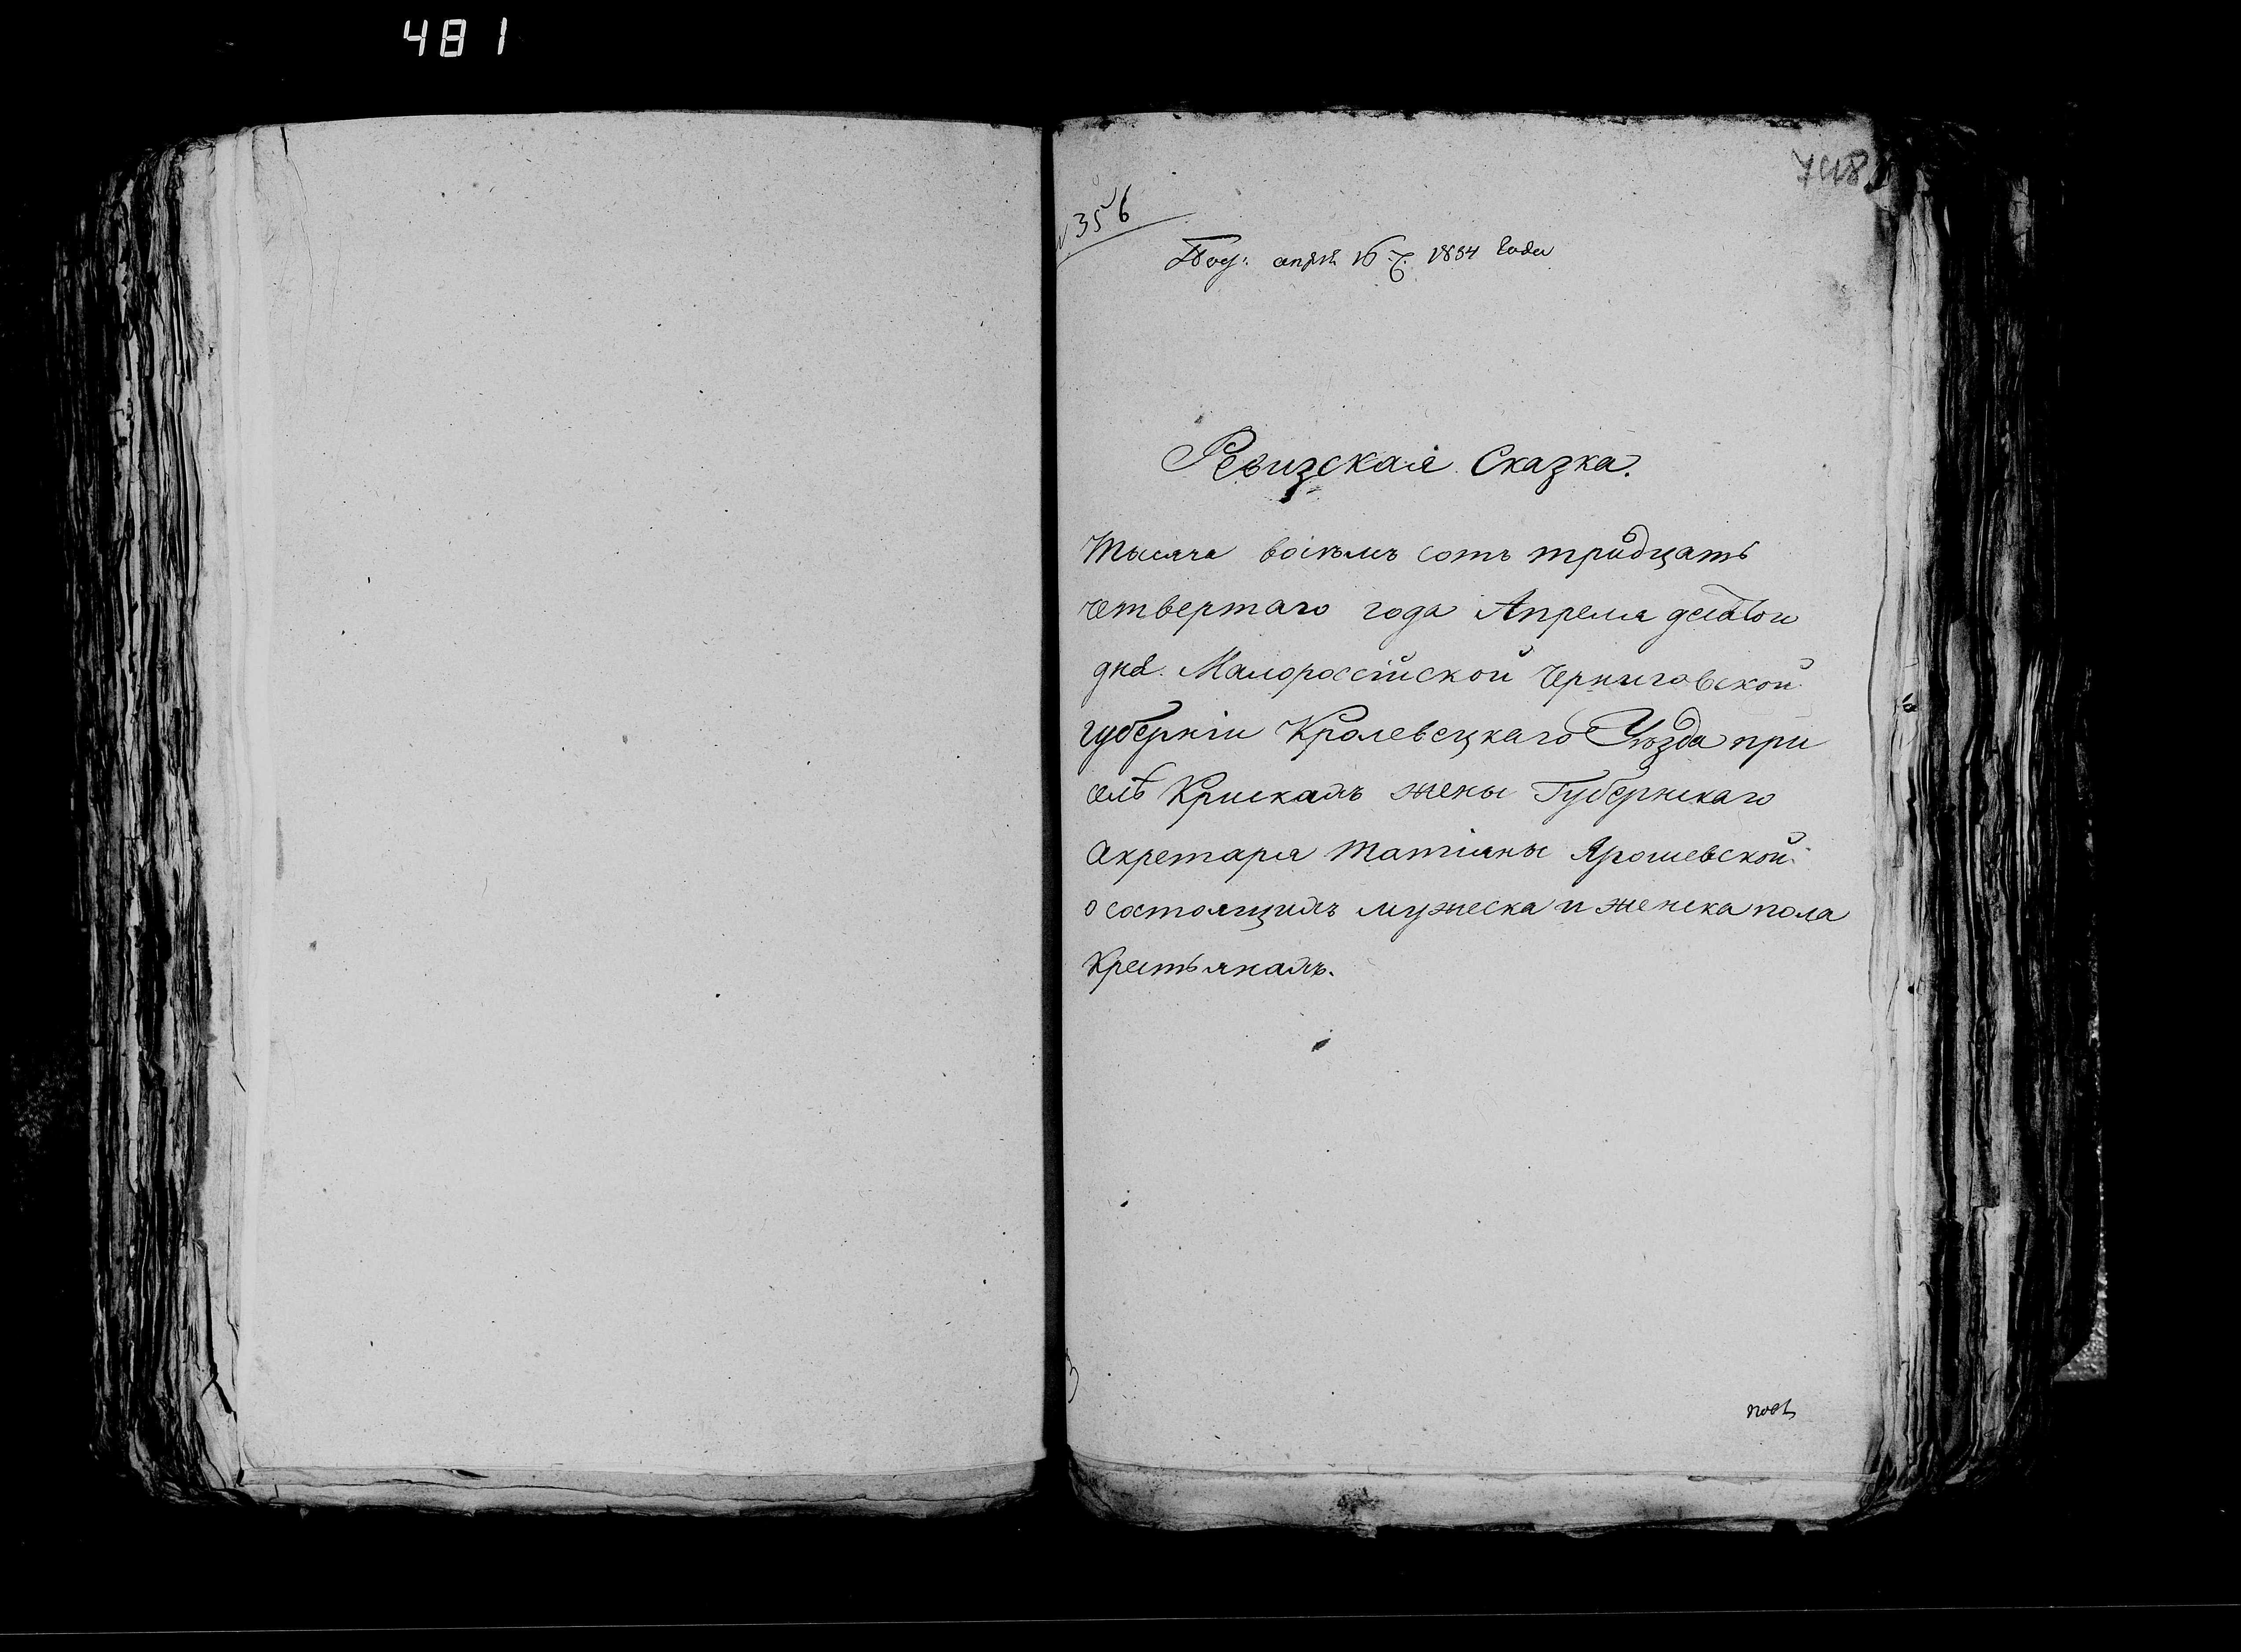 481
748
№ 356
Под: апрѣ 16 ч. 1834 Года
Ревизская Сказка.
Тысяча восьмъ сотъ тридцать
четвертаго года Апреля
дня. Малороссійской Черниговской
губерніи Кролевецкаго Уѣзда при
селѣ Крискахъ жены Губернскаго
секретаря Татіяны Ярошевской
о состоящихъ мужеска и женска пола
Крестьянахъ.